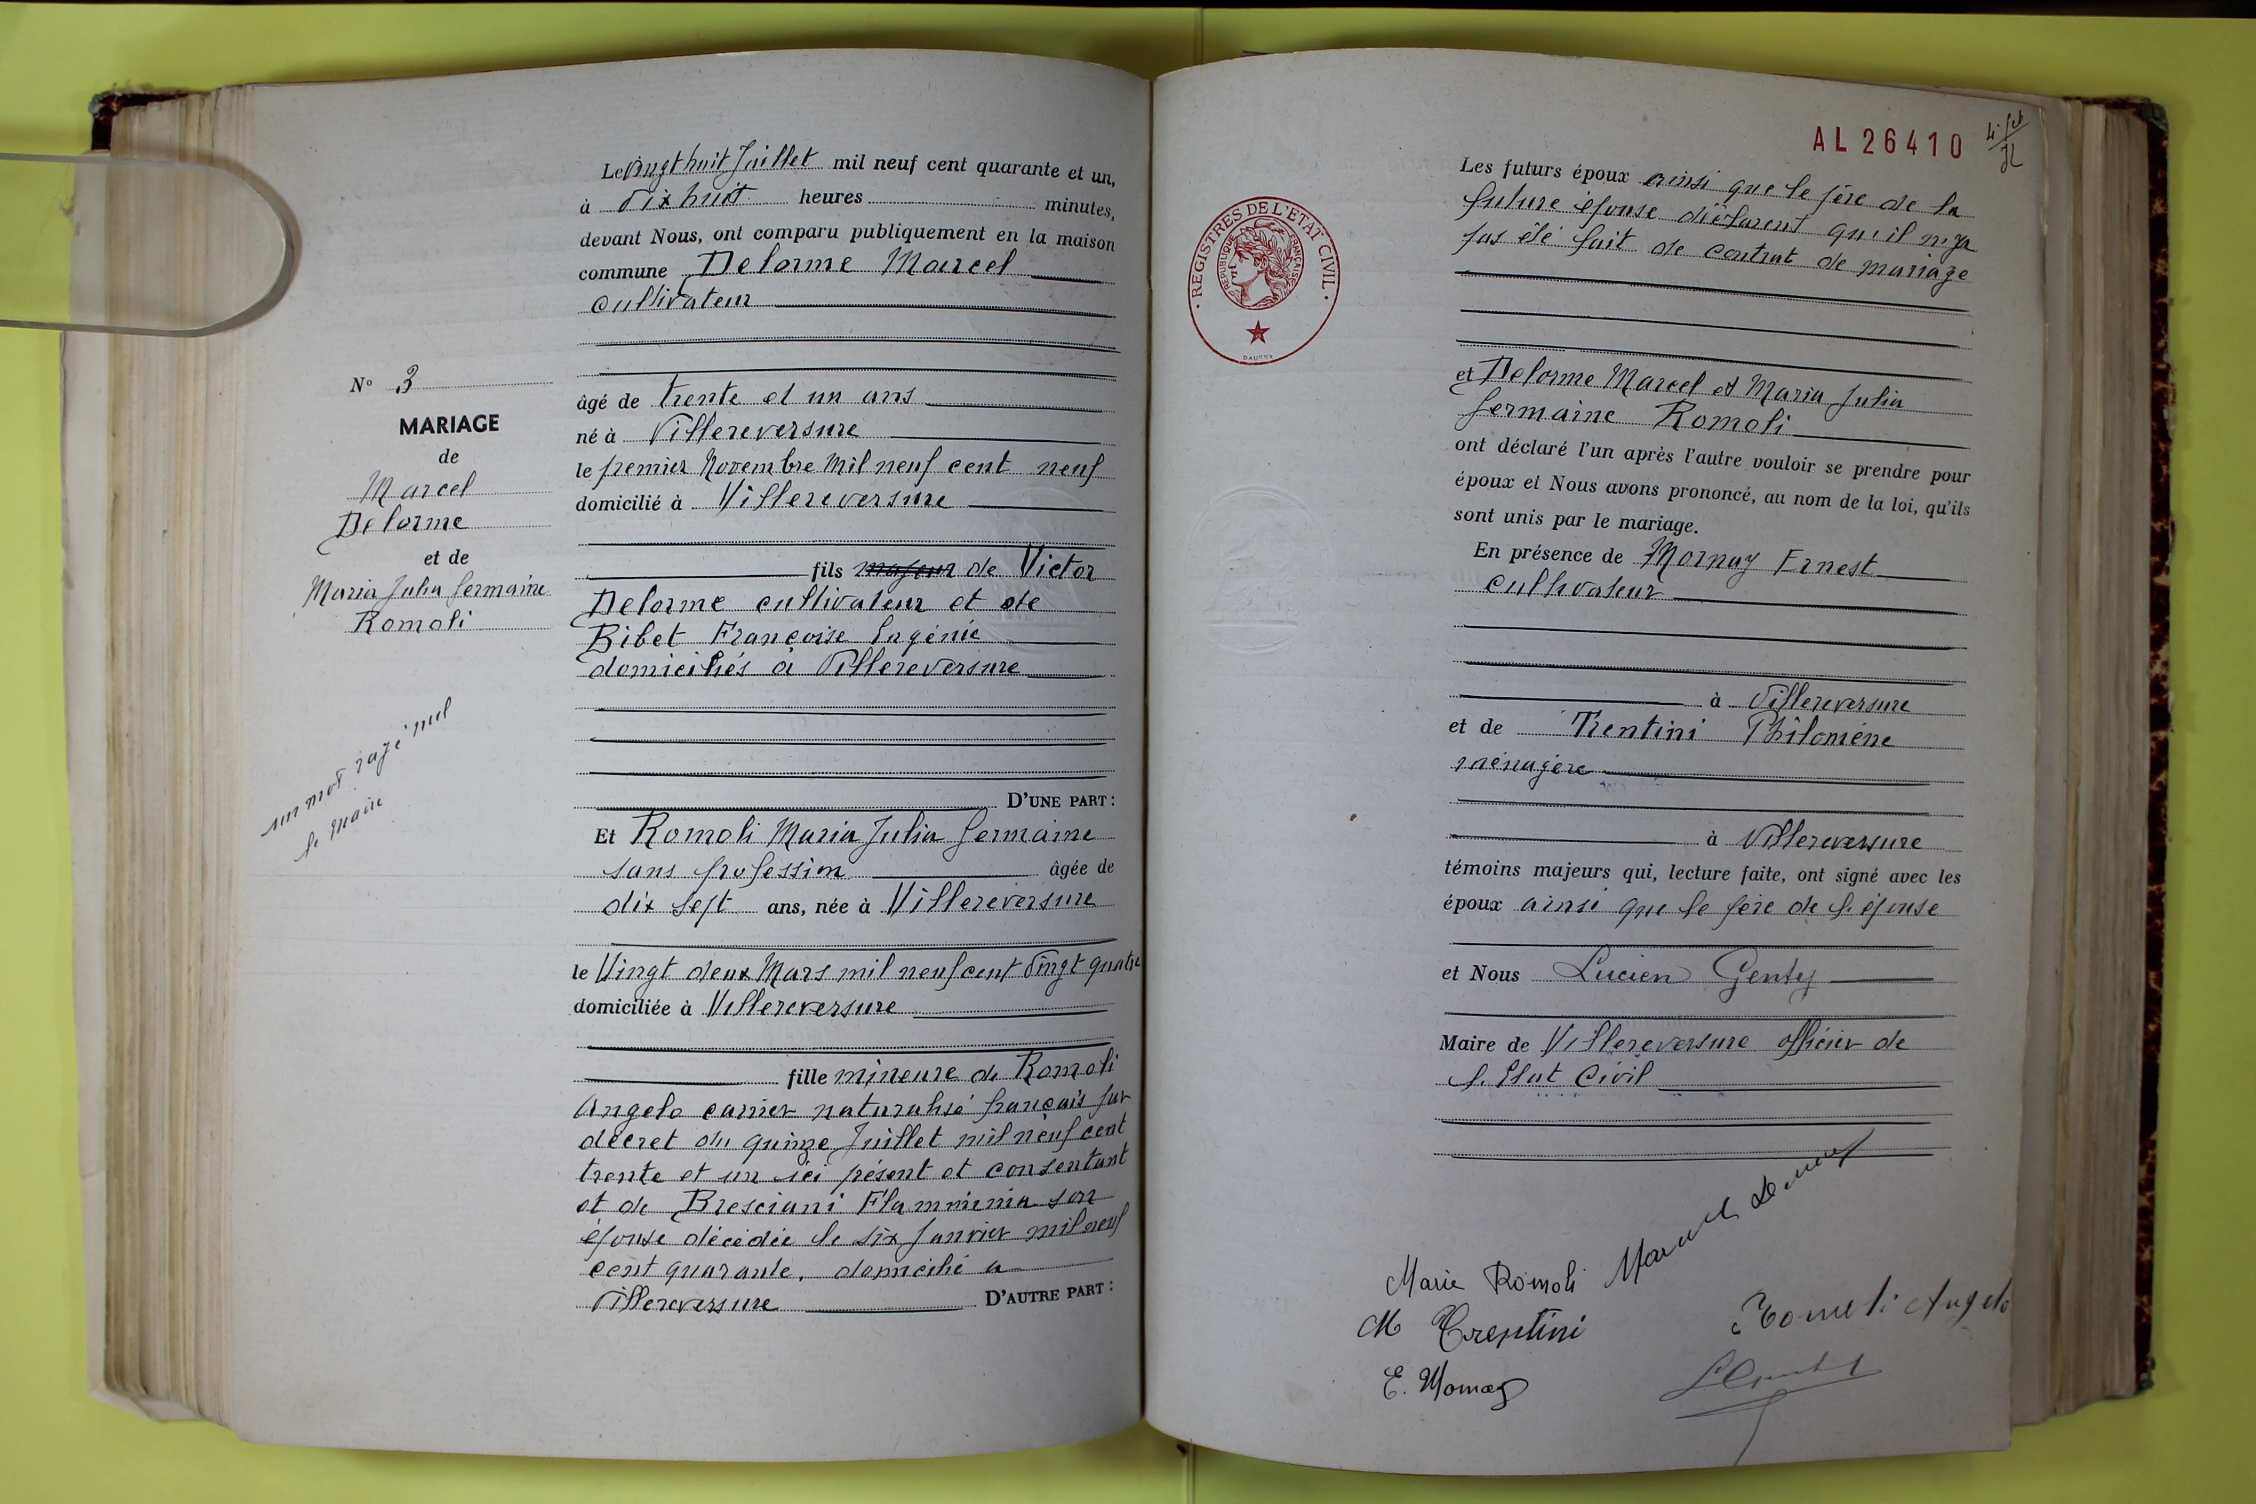 Le Vingt huit Juillet mil neuf cent quarante et un,
à dix huit heures minutes,
devant Nous, ont comparu publiquement en la maison
commune Delorme Marcel
cultivateur
N° 3
MARIAGE
de
Marcel
Delorme
et de
Maria Julia Germaine
Romoli
un mot rayé nul
le Maire
âgé de trente et un ans
né à Villereversure
le premier Novembre Mil neuf cent neuf
domicilié à Villereversure
fils majeur de Victor
Delorme cultivateur et de
Bibet Françoise Eugénie
domiciliés à Villereversure
D'UNE PART :
Et Romoli Maria Julia Germaine
sans profession âgée de
dix sept ans, née à Villereversure
le Vingt deux Mars mil neuf cent vingt quatre
domiciliée à Villereversure
fille mineure de Romoli
Angelo carrier naturalisé français par
décret du quinze Juillet mil neuf cent
trente et un ici présent et consentant
et de Bresciani Flamminia son
épouse décédée le six Janvier mil neuf
cent quarante, domicilié a
Villereversure D'AUTRE PART :
AL 26410
REGISTRES DE L'ETAT CIVIL
REPUBLIQUE FRANÇAISE
DAUSSY
Les futurs époux ainsi que le père de la
future épouse déclarent qu'il n'a
pas été fait de contrat de mariage
et Delorme Marcel et Maria Julia
Germaine Romoli
ont déclaré l'un après l'autre vouloir se prendre pour
époux et Nous avons prononcé, au nom de la loi, qu'ils
sont unis par le mariage.
En présence de Mornay Ernest
cultivateur
à Villereversure
et de Trentini Philomène
ménagère
à Villereversure
témoins majeurs qui, lecture faite, ont signé avec les
époux ainsi que le père de l'épouse
et Nous Lucien Genty
Maire de Villereversure officier de
l'Etat Civil
Marie Romoli Marcel Delorme
M Trentini Romoli Angelo
E. Mornay